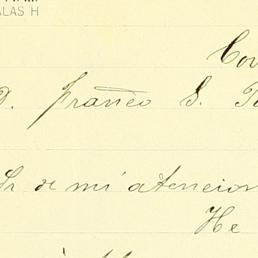 ALAS H
Cov
D. Franco S. To
Sr de mi atencion
He